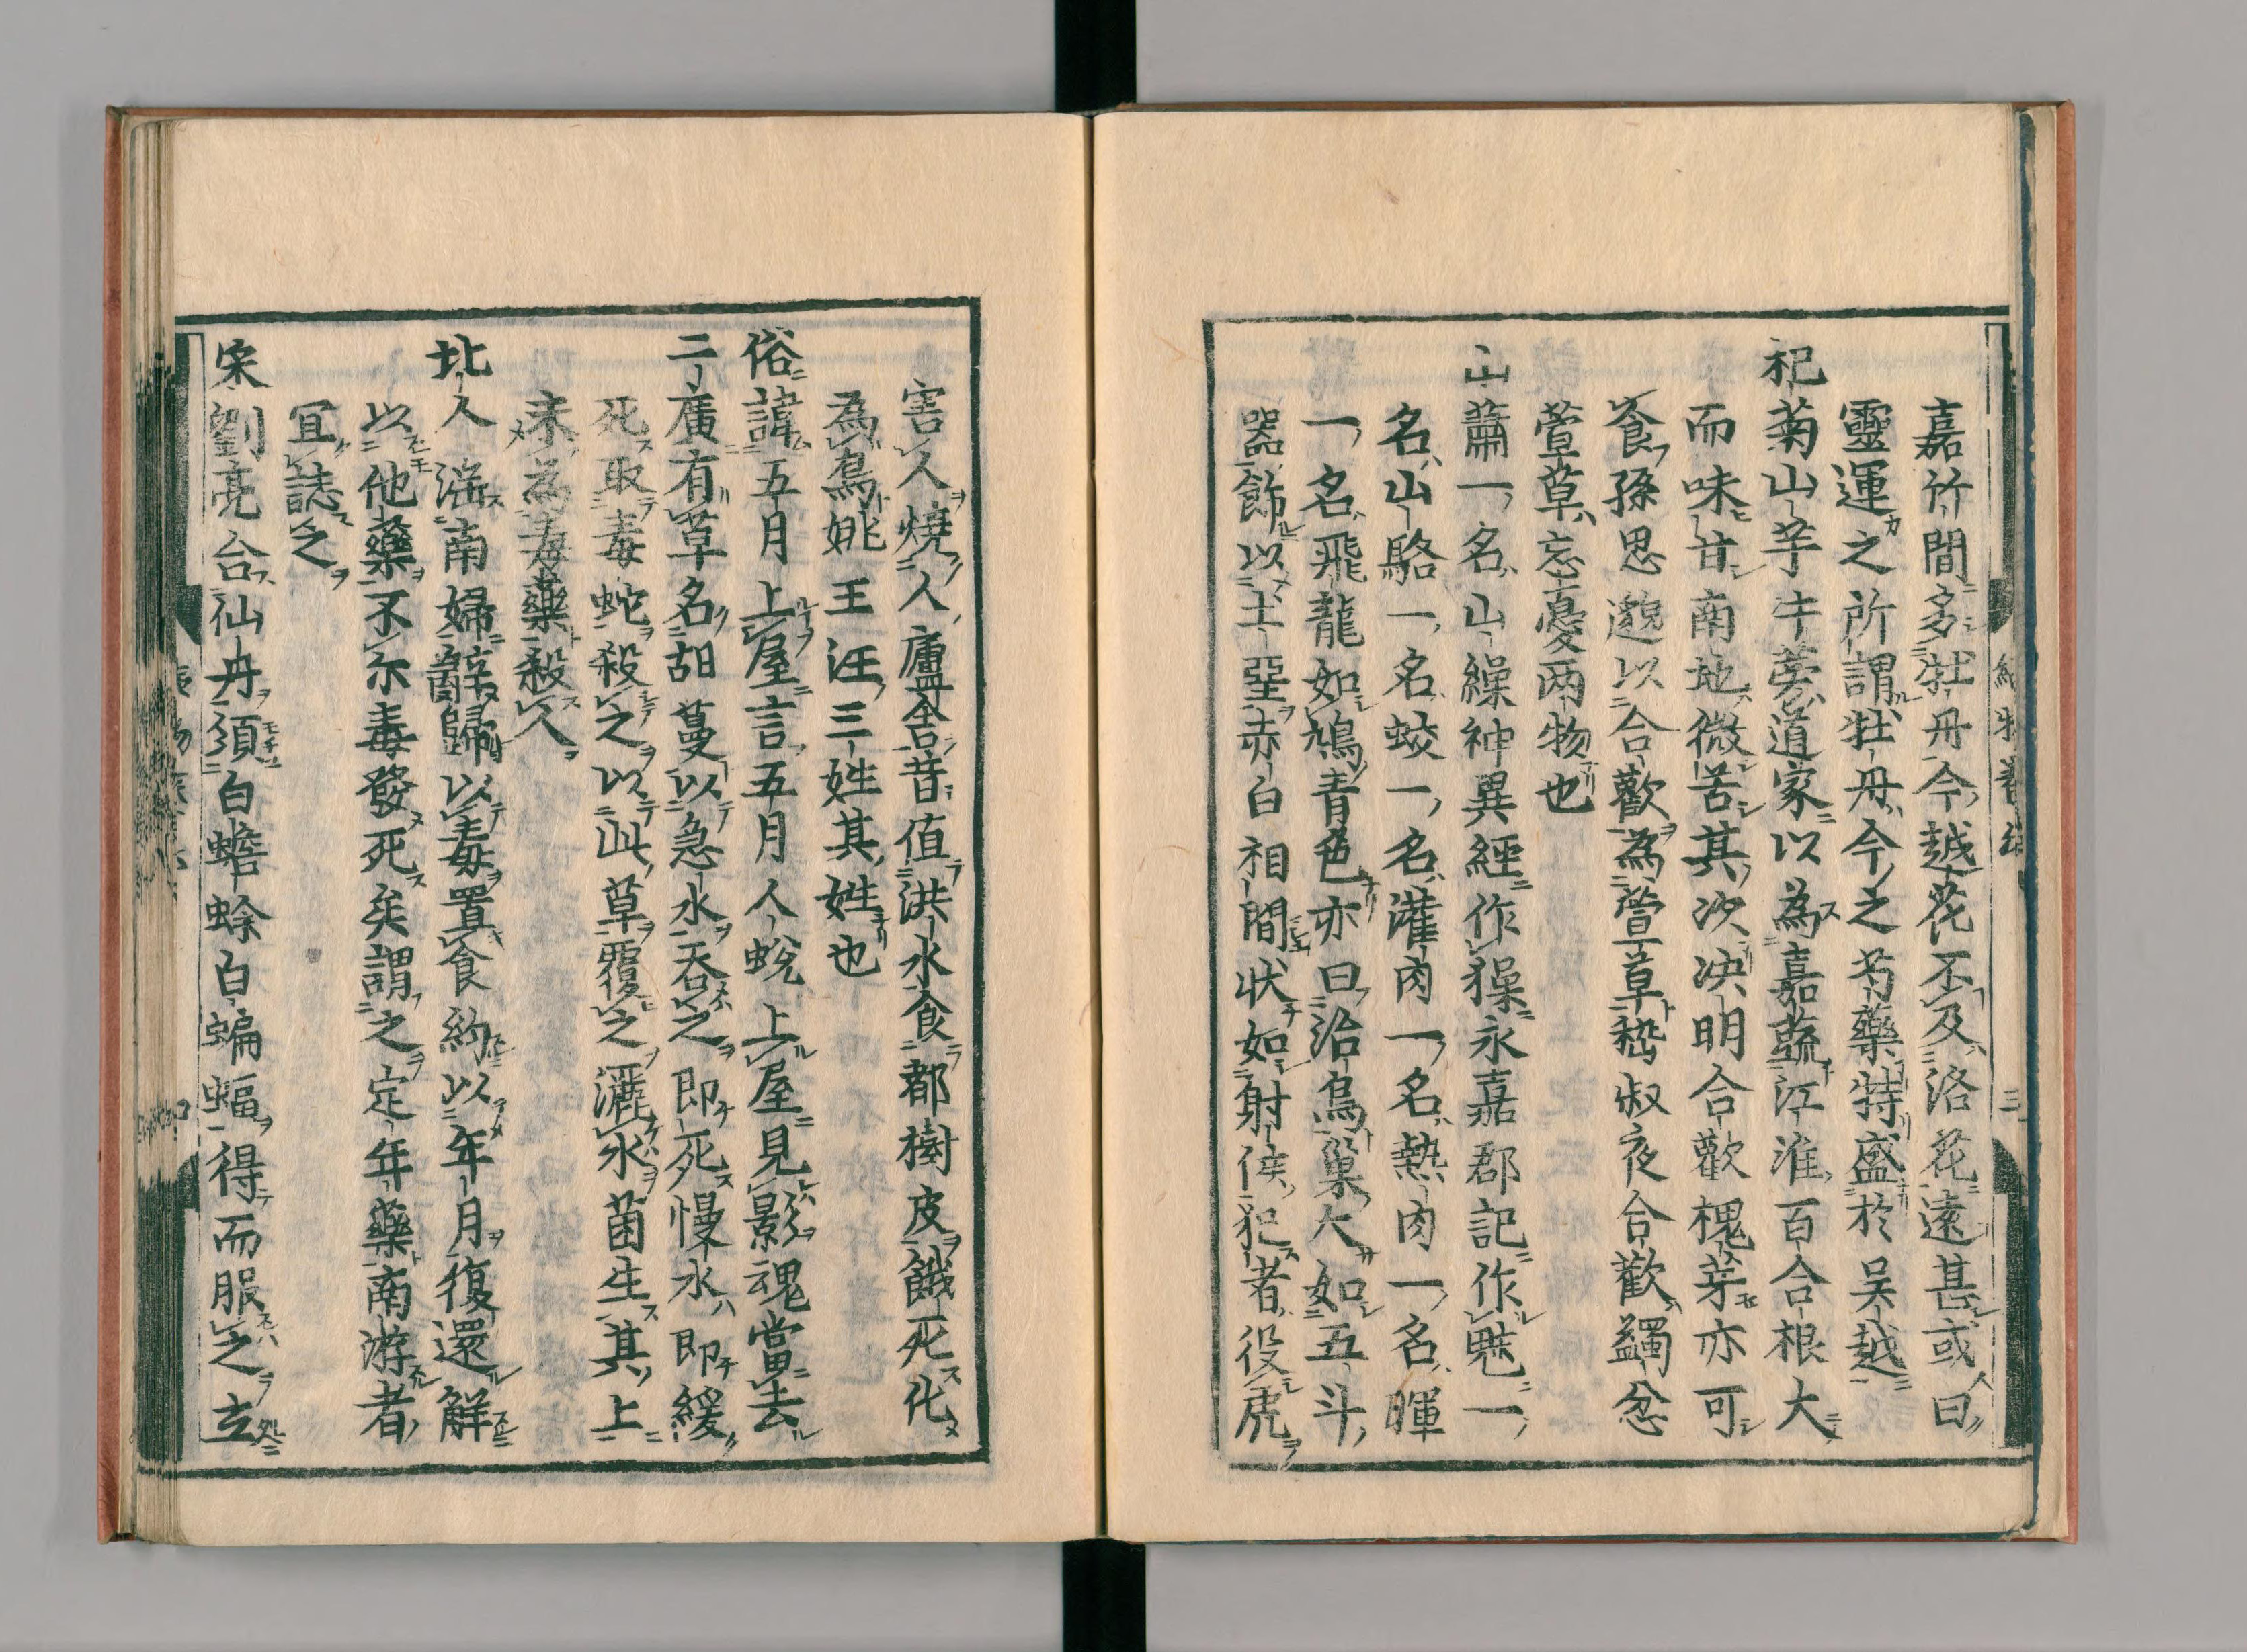 嘉竹間多牡丹今越花不及洛花遠甚或曰
靈運之所謂牡丹今之芍藥特盛於吴越
祀菊山芋牛蒡道家以為嘉蔬江淮百合根大
而味甘南地微苦其次决明合歡槐芽亦可
食孫思邈以合歡為萱草嵇叔夜合歡蠲忿
萱草忘憂兩物也
山蕭一名山繰神異經作㺑永嘉郡記作魈一
名山駱一名蛟一名濯肉一名熱肉一名暉
一名飛龍如鳩青色亦曰治鳥巢大如五斗
器飾以土堊赤白相間狀如射侯犯者役虎
害人燒人廬舍昔值洪水食都樹皮餓死化
為鳥姚王汪三姓其姓也
俗諱五月上屋言五月人蛻上屋見影魂當去
二廣有草名胡蔓以急水吞之即死慢水即緩
死取毒蛇殺之以此草覆之灑水菌生其上
末為毒藥殺人
北人淫南婦辭歸以毒置食約以年月復還解
以他藥不尓毒發死矣謂之定年藥南游者
宜誌之
宋劉亮合仙丹須白蟾蜍白蝙蝠得而服之立